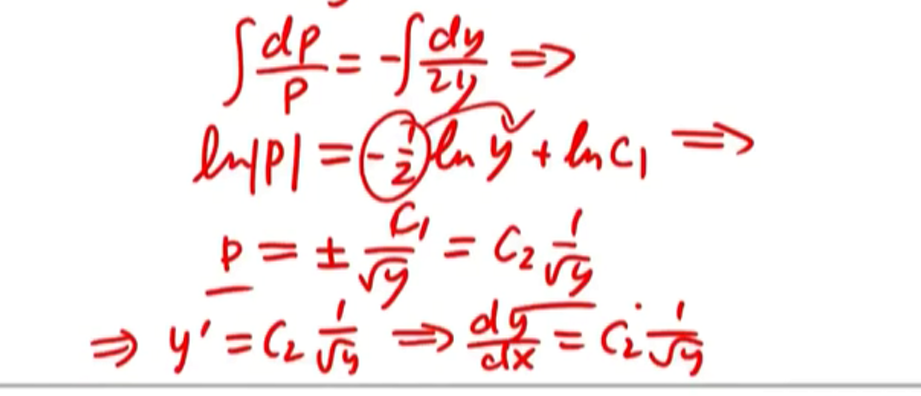 ∫ dp/p = -∫ dy/2y ⇒
ln|p| = -1/2 ln y + ln C₁ ⇒
p = ± C₁/√y = C₂ 1/√y
⇒ y' = C₂ 1/√y ⇒ dy/dx = C₂ · 1/√y